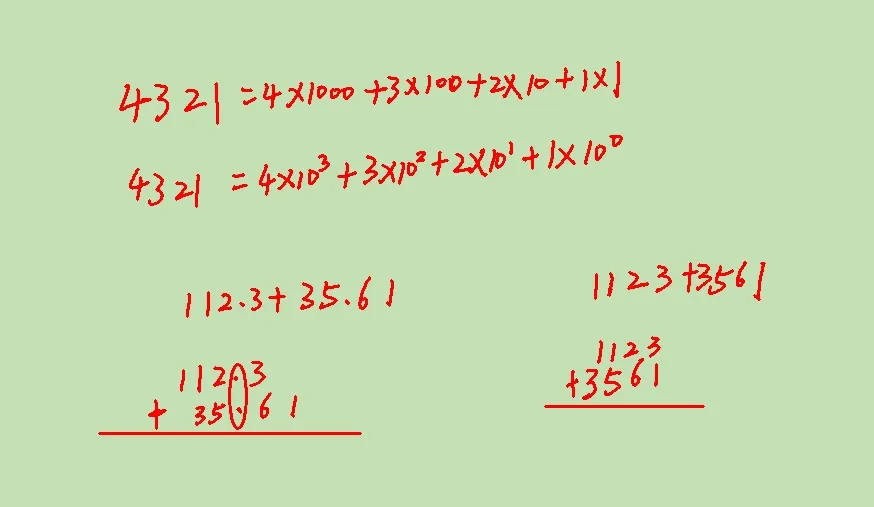 4321=4×1000+3×100+2×10+1×1
4321=4×10³+3×10²+2×10¹+1×10⁰
112.3+35.61
1123+3561
112.3
+ 35.61
1123
+3561